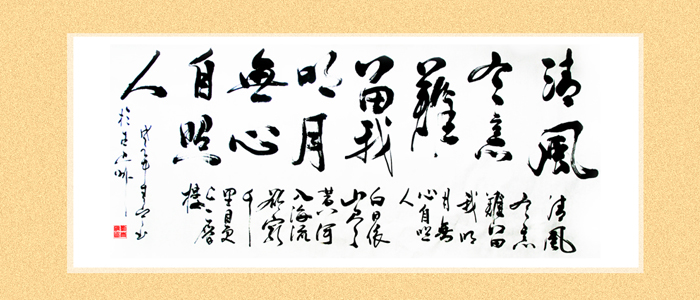 清風
有意
難
留我
明月
無心
自照
人
清風
有意
難留
我明
月無
心自照
人
白日依
山尽
黄河
入海流
欲窮
千
里目更
上一層
楼